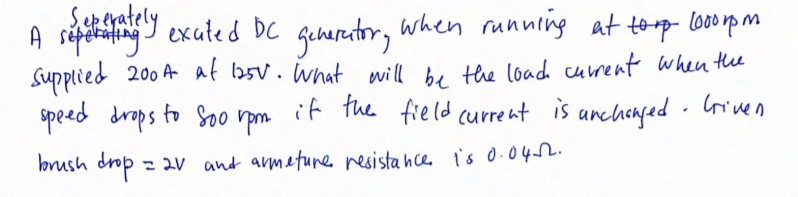 Seperately
A seperating excited DC generator, when running at to rp 1000 rpm
supplied 200A at 125V. What will be the load current when the
speed drops to 800 rpm if the field current is unchanged. Given
brush drop = 2V and armeture resistance is 0.04Ω.